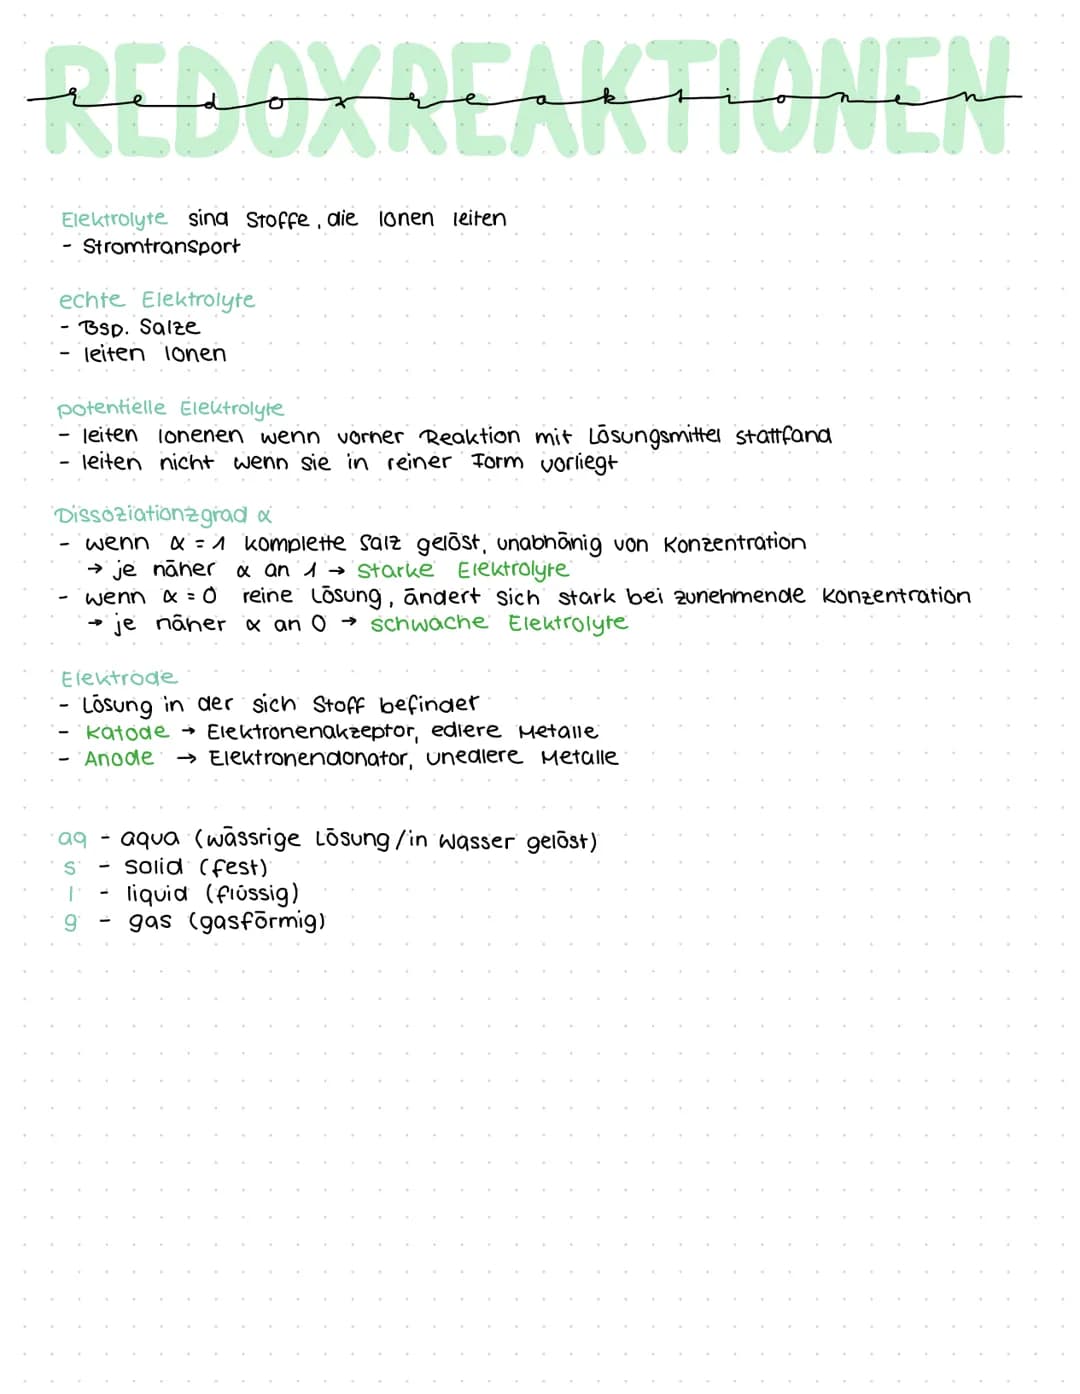 REDOXREAKTIONEN
redoxreaktionen
Elektrolyte sind Stoffe, die Ionen leiten
- Stromtransport
echte Elektrolyte
- Bsp. Salze
- leiten Ionen
potentielle Elektrolyte
- leiten Ionenen wenn vorher Reaktion mit Lösungsmittel stattfand
- leiten nicht wenn sie in reiner Form vorliegt
Dissoziationzgrad α
- wenn α = 1 komplette Salz gelöst, unabhänig von Konzentration
→ je näher α an 1 → starke Elektrolyte
- wenn α = 0 reine Lösung, ändert sich stark bei zunehmende Konzentration
→ je näher α an 0 → schwache Elektrolyte
Elektrode
- Lösung in der sich Stoff befindet
- Katode → Elektronenakzeptor, edlere Metalle
- Anode → Elektronendonator, unedlere Metalle
aq - aqua (wässrige Lösung/in Wasser gelöst)
s - solid (fest)
l - liquid (flüssig)
g - gas (gasförmig)